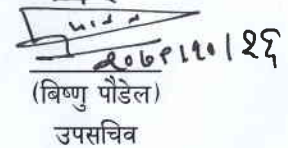 २०७९।१०।२६
(बिष्णु पौडेल)
उपसचिव